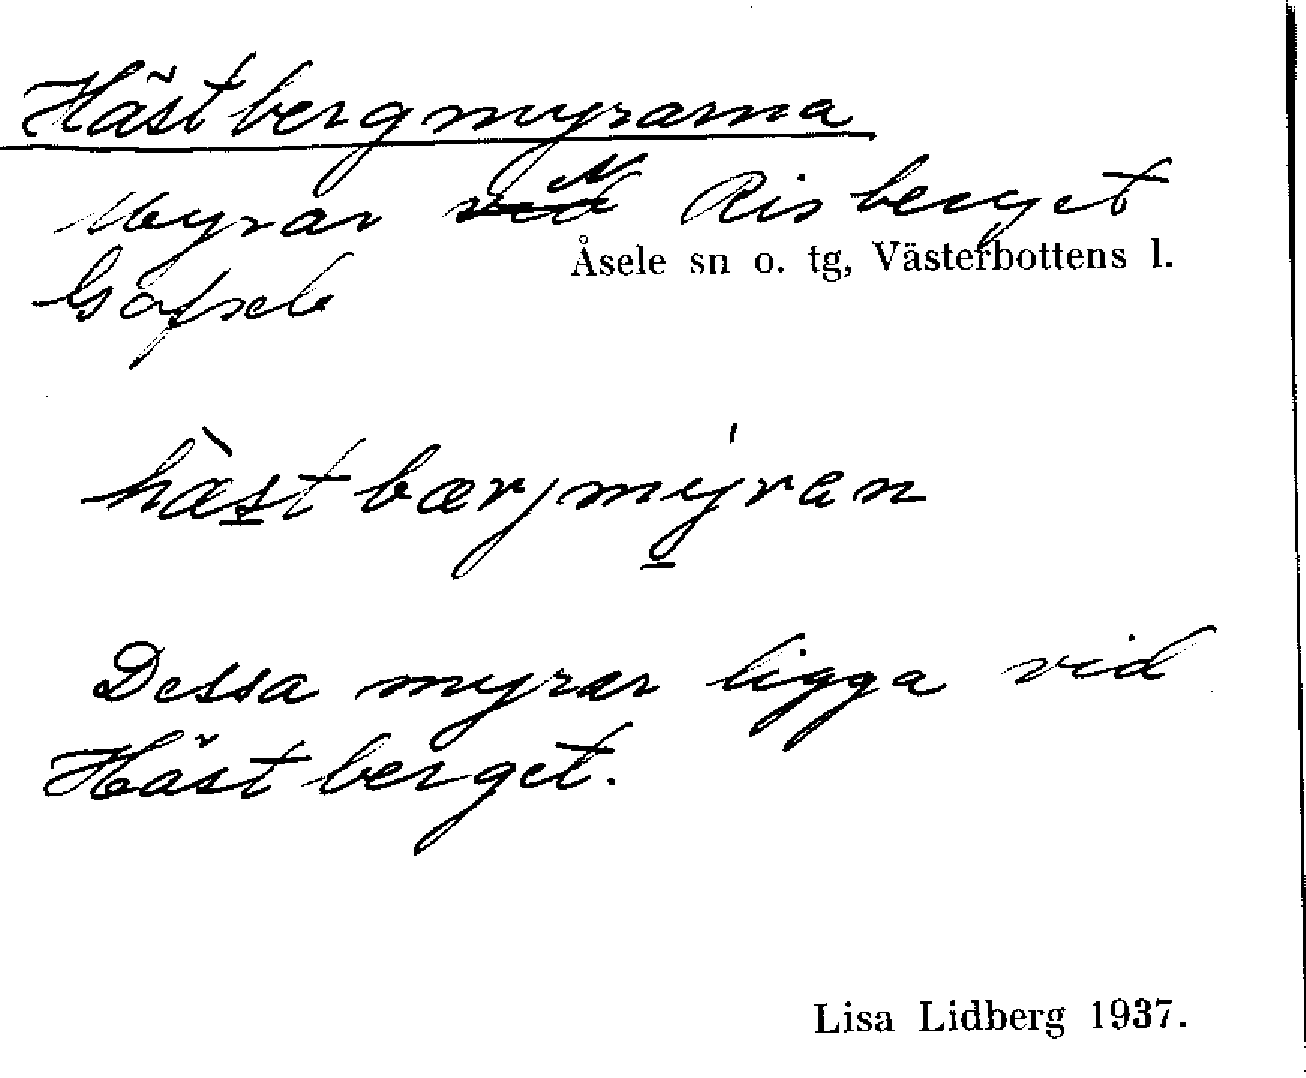 Hästbergmyrarna
Myrar N Risberget
Åsele sn o. tg, Västerbottens l.
Gafsele
hæstbærjmyran
Dessa myrar ligga vid
Hästberget.
Lisa Lidberg 1937.